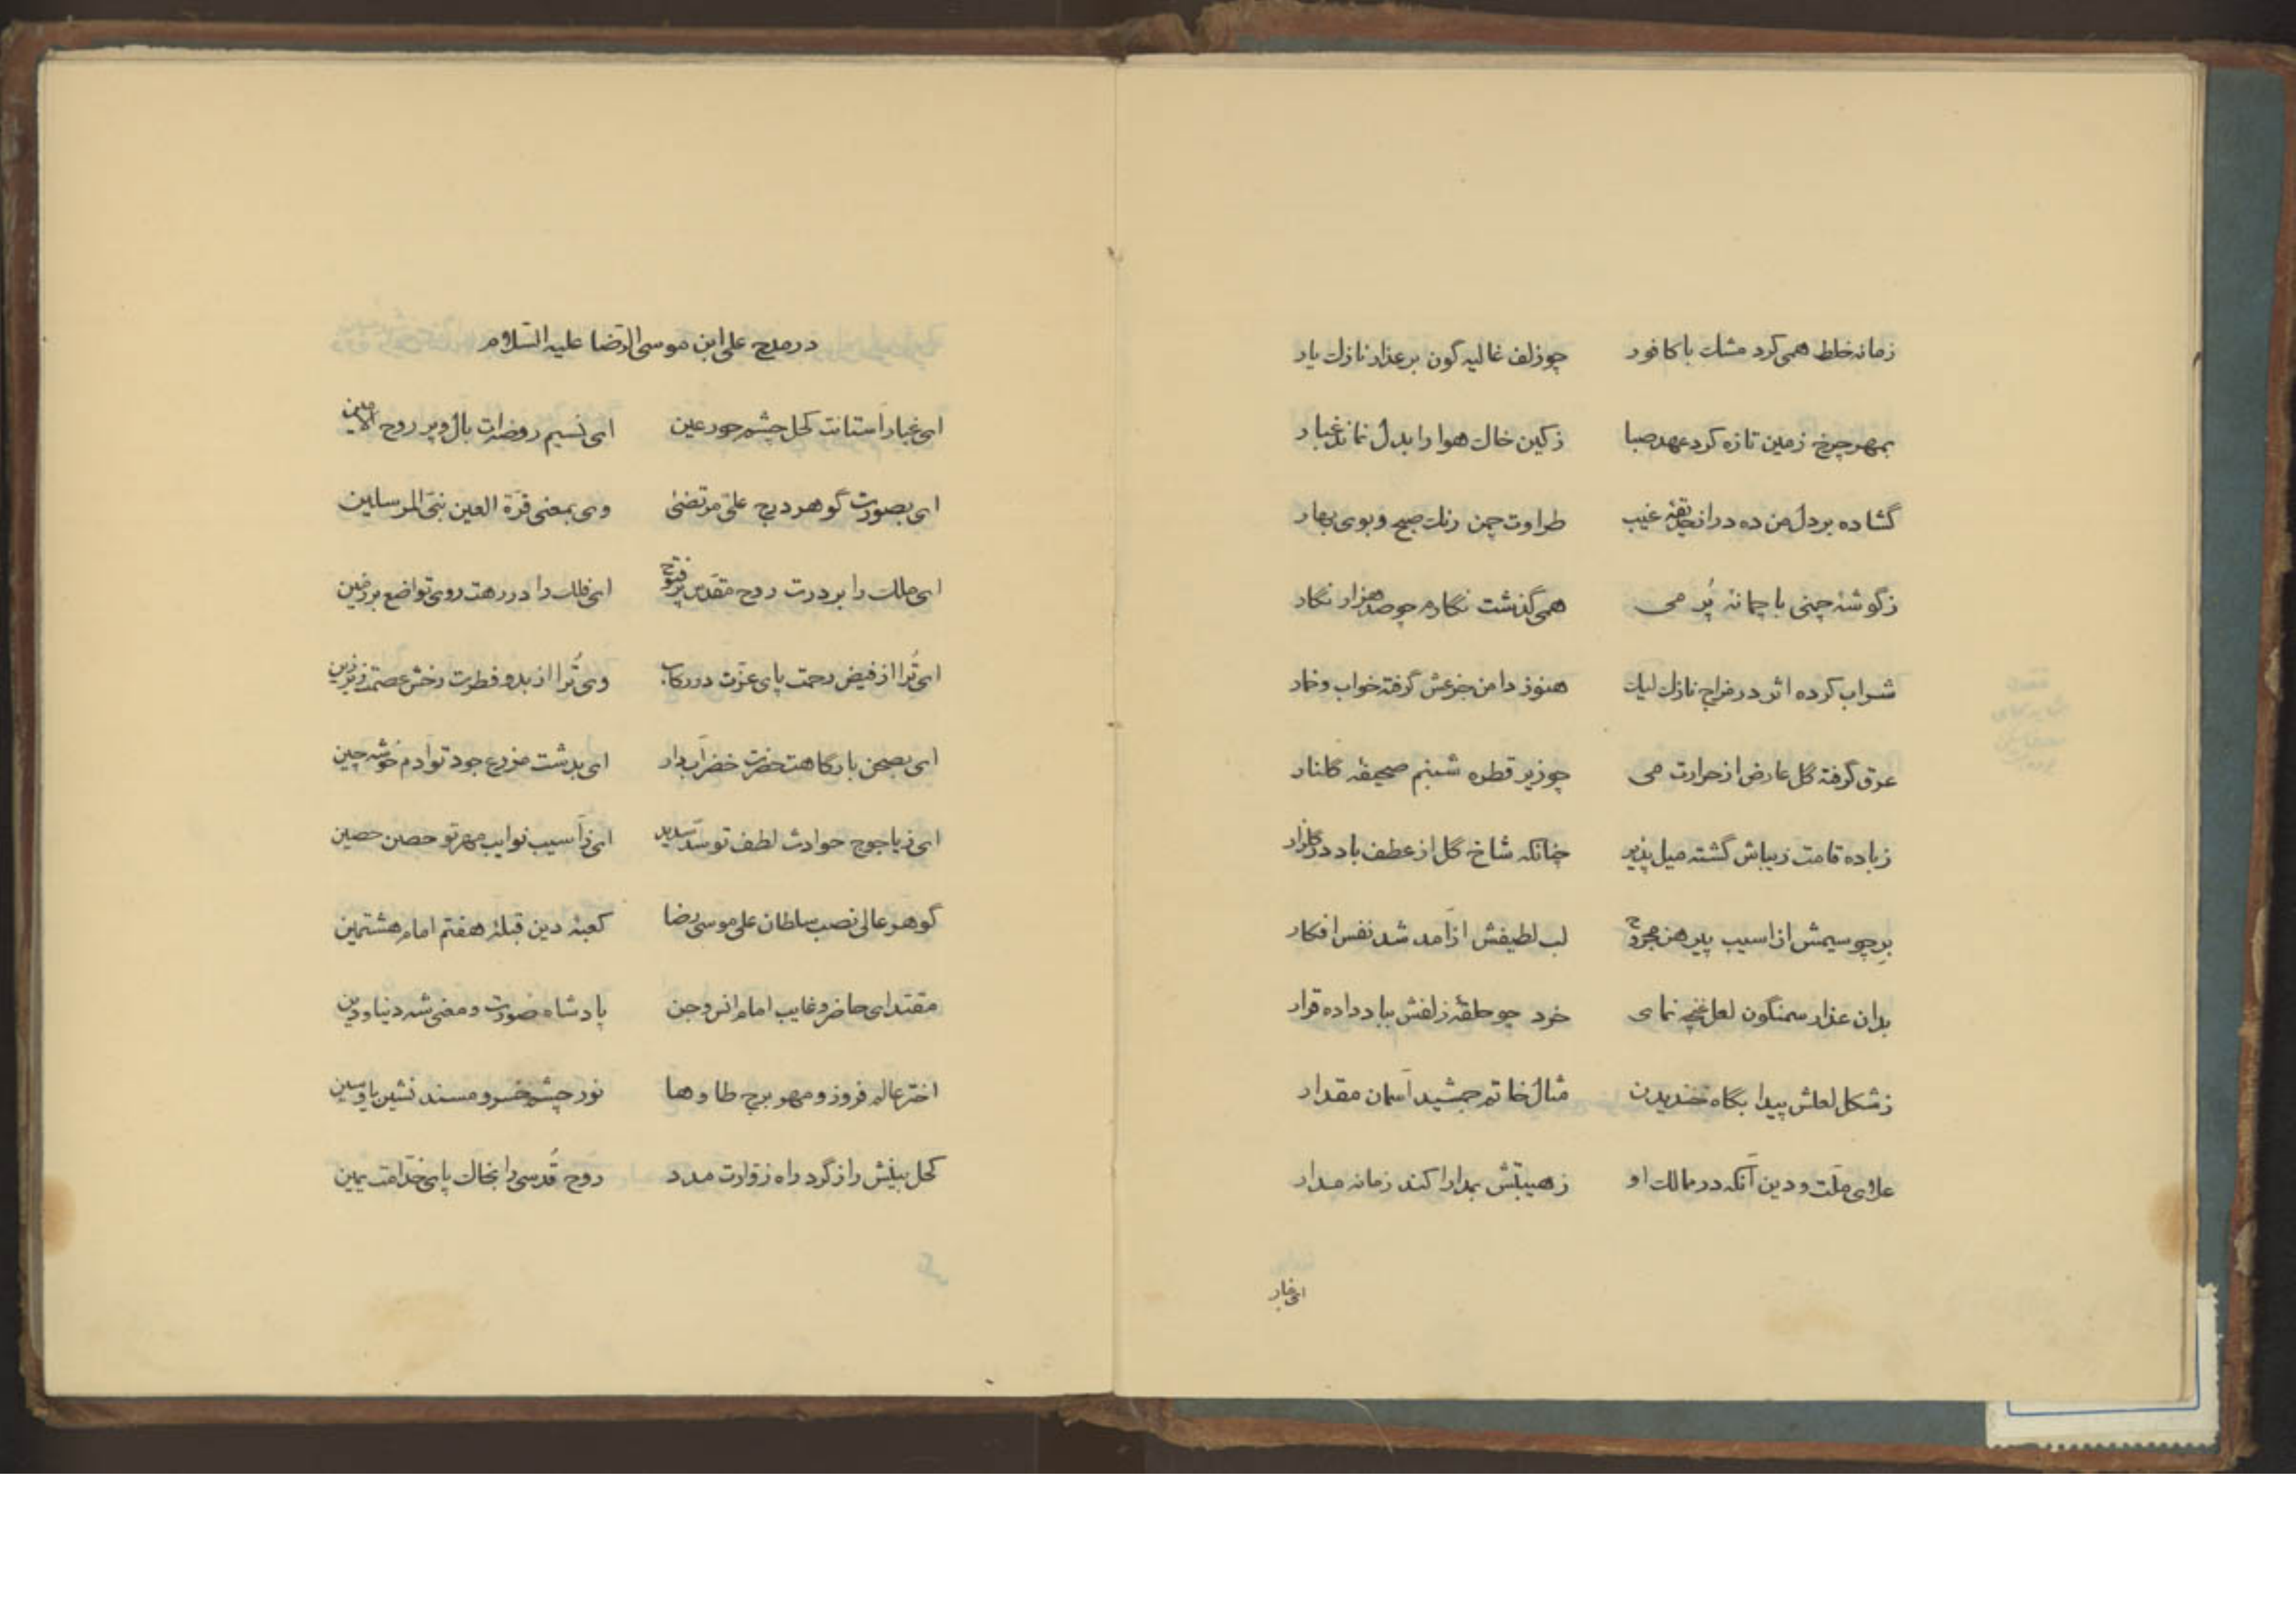 زمانه خلط همی کرد مشک با کافور چو زلف غالیه گون بر عذار نازک یار
بمهر چرخ زمین تازه کرد عهد صبا زکین خاک هوا را بدل نماند غبار
گشاده بر دل من ده در از غیب طراوت چمن رنک صبح و بوی بهار
زگوشهٔ چمنی با چمانهٔ پُر می همی گذشت نگارم چو صد هزار نگار
شراب کرده اثر در مزاج نازک لیک هنوز دامن جزعش گرفته خواب و خمار
عرق گرفته گل عارض از حرارت می چو زیر قطره شبنم صحیفه گلنار
زباده قامت زیباش گشته میل پذیر چنانکه شاخ گل از عطف باد در گلزار
برِ چو سیمش از اسیب پیرهن مجروح لب لطیفش از آمد شد نفس افکار
بدان عذار سمنگون لعل غنچه نمای خرد چو حلقهٔ زلفش بباد داده قرار
زشکل لعلش پیدا بگاه خندیدن مثال خاتم جمشید آسمان مقدار
علای ملّت و دین آنکه در ممالک او زهیبتش بمدارا کند زمانه مدار
ای غبار
در مدح علی ابن موسی الرّضا علیه السّلام
ای غبار آستانت کحل چشم حور عین ای نسیم روضه ات بال و پر روح الامین
ای بصورت گوهر درج علیّ مرتضیٰ وی بمعنی قرّة العین نبیّ المرسلین
ای ملک را بر درت روح مقدّس پر فتوح ای فلک را در رهت روی تواضع بر زمین
ای تُرا از فیض رحمت پای عزّت در رکاب وی تُرا از بدو فطرت رخش عصمت زیر زین
ای بصحن بارگاهت حضرت خضر آبدار ای بدشت مزرع جود تو آدم خوشه چین
ای زیاجوج حوادث لطف تو سدّ سدید ای ز آسیب نوایب مهر تو حصن حصین
گوهر عالی نصب سلطان علی موسی رضا کعبهٔ دین قبلهٔ هفتم امام هشتمین
مقتدای حاضر و غایب امام انس و جن پادشاه صورت و معنی شه دنیا و دین
اختر عالم فروز و مهر برج طا و ها نور چشم خسرو مسند نشین یا و سین
کحل بینش را زگرد راه زوّارت مدد روح قُدسی را بخاک پای خدّامت یمین